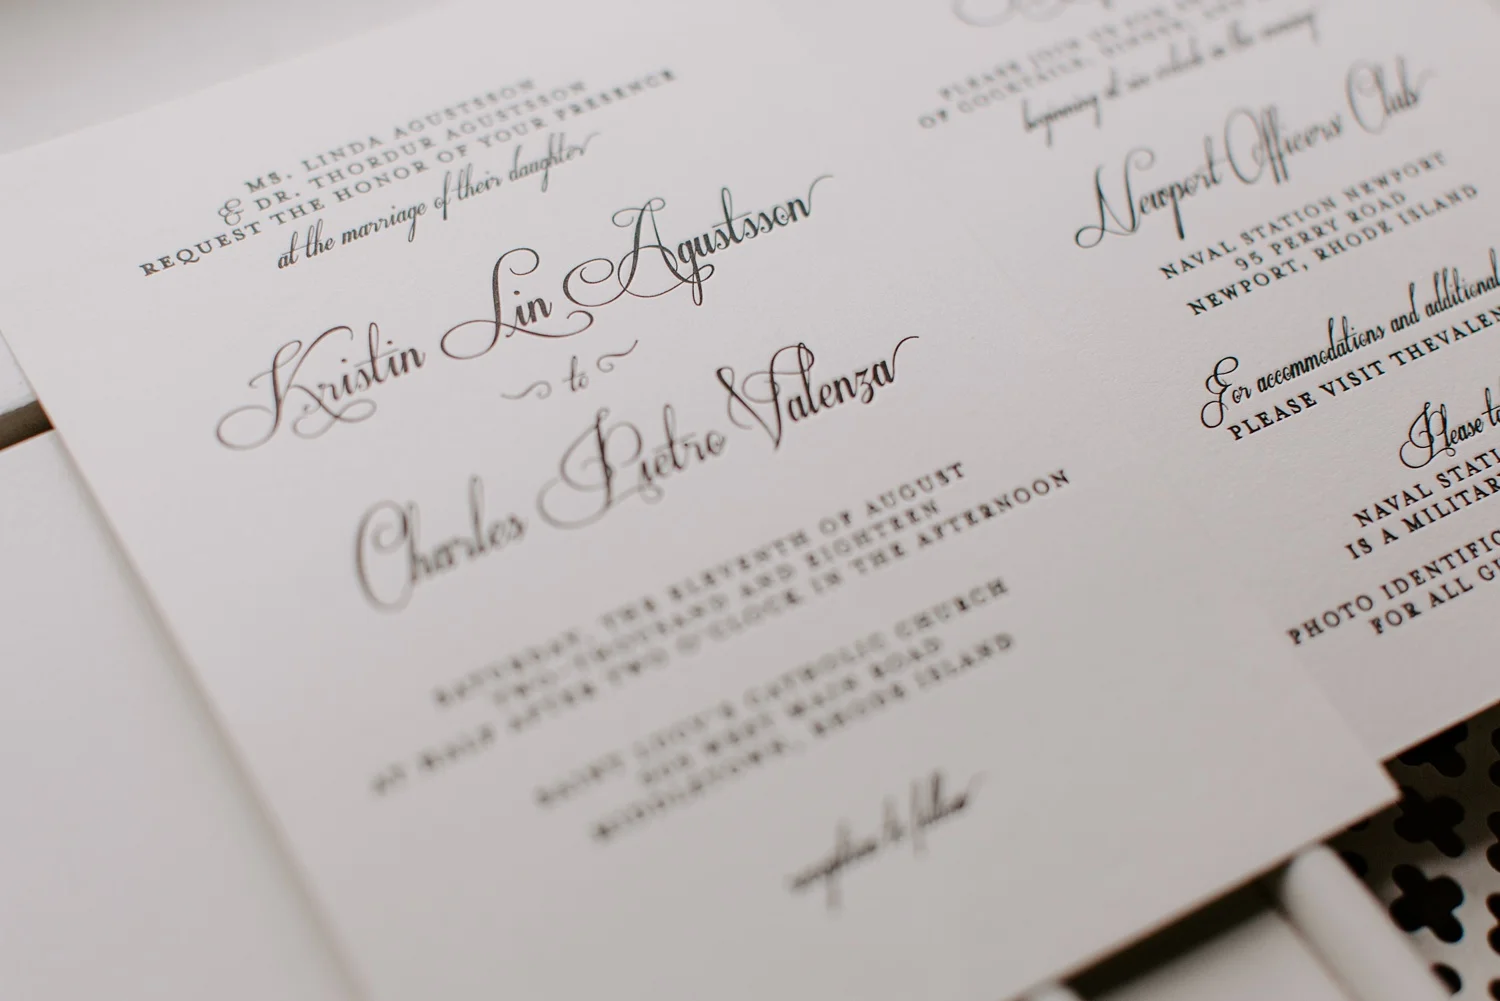 MS. LINDA AGUSTSSON
& DR. THORDUR AGUSTSSON
REQUEST THE HONOR OF YOUR PRESENCE
at the marriage of their daughter
Kristin Lin Agustsson
to
Charles Pietro Valenza
SATURDAY, THE ELEVENTH OF AUGUST
TWO-THOUSAND AND EIGHTEEN
AT HALF AFTER TWO O'CLOCK IN THE AFTERNOON
SAINT LUCY'S CATHOLIC CHURCH
WEST MAIN ROAD
MIDDLETOWN, RHODE ISLAND
reception to follow
PLEASE JOIN US FOR
OF COCKTAILS, DINNER, AND
beginning at six o'clock in the evening
Newport Officers Club
NAVAL STATION NEWPORT
95 PERRY ROAD
NEWPORT, RHODE ISLAND
For accommodations and additional
PLEASE VISIT THEVALEN
Please
NAVAL STATI
IS A MILITAR
PHOTO IDENTIFIC
FOR ALL G